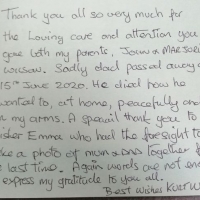 Thank you all so very much for
the Loving care and attention you
gave both my parents, John & MARJOR
Sadly dad passed away
15th June 2020. He died how he
wanted to, at home, peacefully and
in my arms. A special thank you to
sister Emma who had the foresight to
ke a photo of mum & dad together f
e last time. Again words are not eno
express my gratitude to you all.
Best Wishes Kurt W